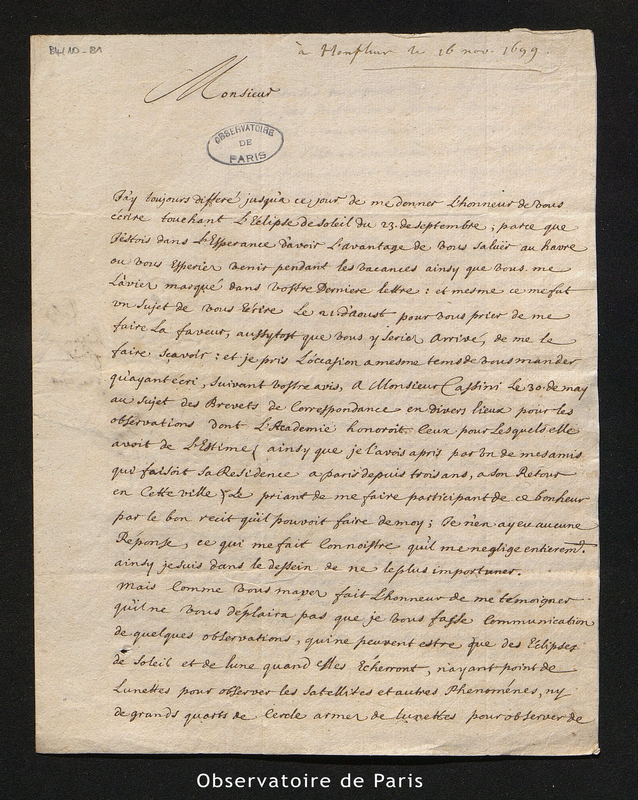 B4/10-B1
à Honfleur le 16 nov. 1699.
Monsieur
OBSERVATOIRE
DE
PARIS
J'ay toujours differé jusqu'a ce jour de me donner L'honneur de vous
écrire touchant L'Eclipse de soleil du 23. de septembre ; parce que
J'estois dans L'Esperance d'avoir L'avantage de vous saluer au havre
ou vous Esperiez venir pendant les vacances ainsy que vous me
L'aviez marqué dans vostre Derniere lettre : et mesme ce me fut
vn sujet de vous Ecrire Le 21. d'aoust pour vous prier de me
faire La faveur, aussytost que vous y seriez Arrivé, de me le
faire sçavoir : et je pris L'occasion a mesme tems de vous mander
qu'ayant écri, suivant vostre avis, A Monsieur Cassini Le 30. de may
au sujet des Brevets de Correspondance en divers lieux pour les
observations dont L'Academie honoroit Ceux pour Lesquels elle
avoit de L'Estime ( ainsy que je l'avois apris par vn de mes amis
qui faisoit sa Residence a paris depuis trois ans, a son Retour
en Cette ville ) Le priant de me faire participant de ce bonheur
par le bon recit qu'il pouvoit faire de moy ; Je n'en ay eu aucune
Réponse, ce qui me fait Connoistre qu'il me neglige entierem.t
ainsy je suis dans le dessein de ne le plus importuner.
Mais Comme vous m'avez fait L'honneur de me témoigner
qu'il ne vous déplaira pas que je vous fasse Communication
de quelques observations, qui ne peuvent estre que des Eclipses
de soleil et de lune quand Elles Echerront, n'ayant point de
Lunettes pour observer les satellites et autres Phenoménes, ny
de grands quarts de Cercle armez de lunettes pour observer de
Observatoire de Paris